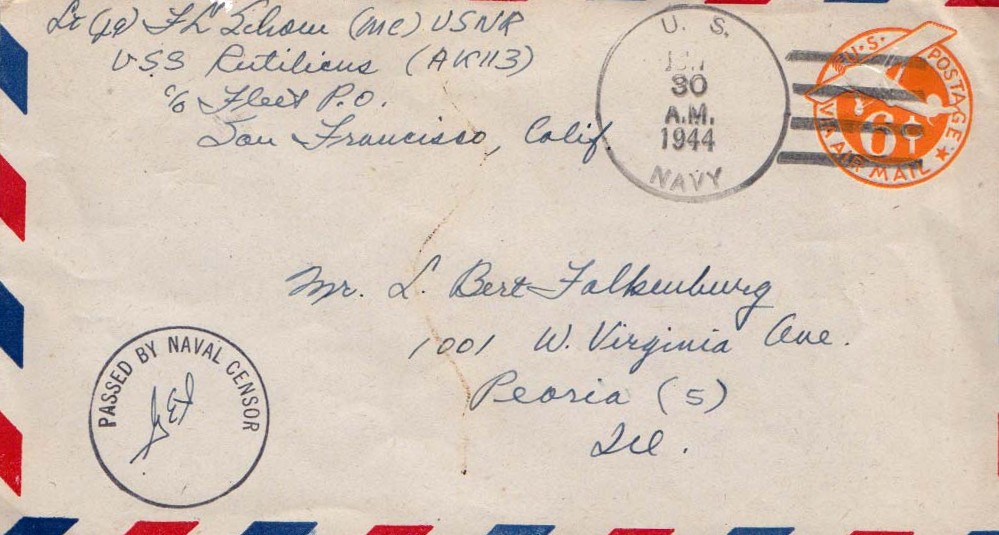 Lt (jg) F L Schow (MC) USNR
USS Rutilicus (AK113)
c/o Fleet P.O.
San Francisco, Calif.
U. S.
30
A.M.
1944
NAVY
U.S. POSTAGE
6¢
VIA AIR MAIL
Mr. L. Bert Falkenburg
1001 W. Virginia Ave.
Peoria (5)
Ill.
PASSED BY NAVAL CENSOR